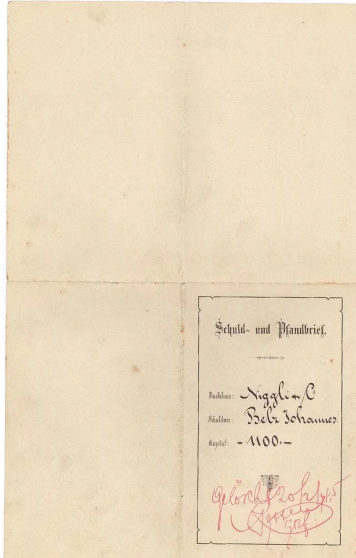 Schuld- und Pfandbrief.
Niggli & C
Schuldner: Belz Johannes
Kapital: - 1100.-
Gelöscht